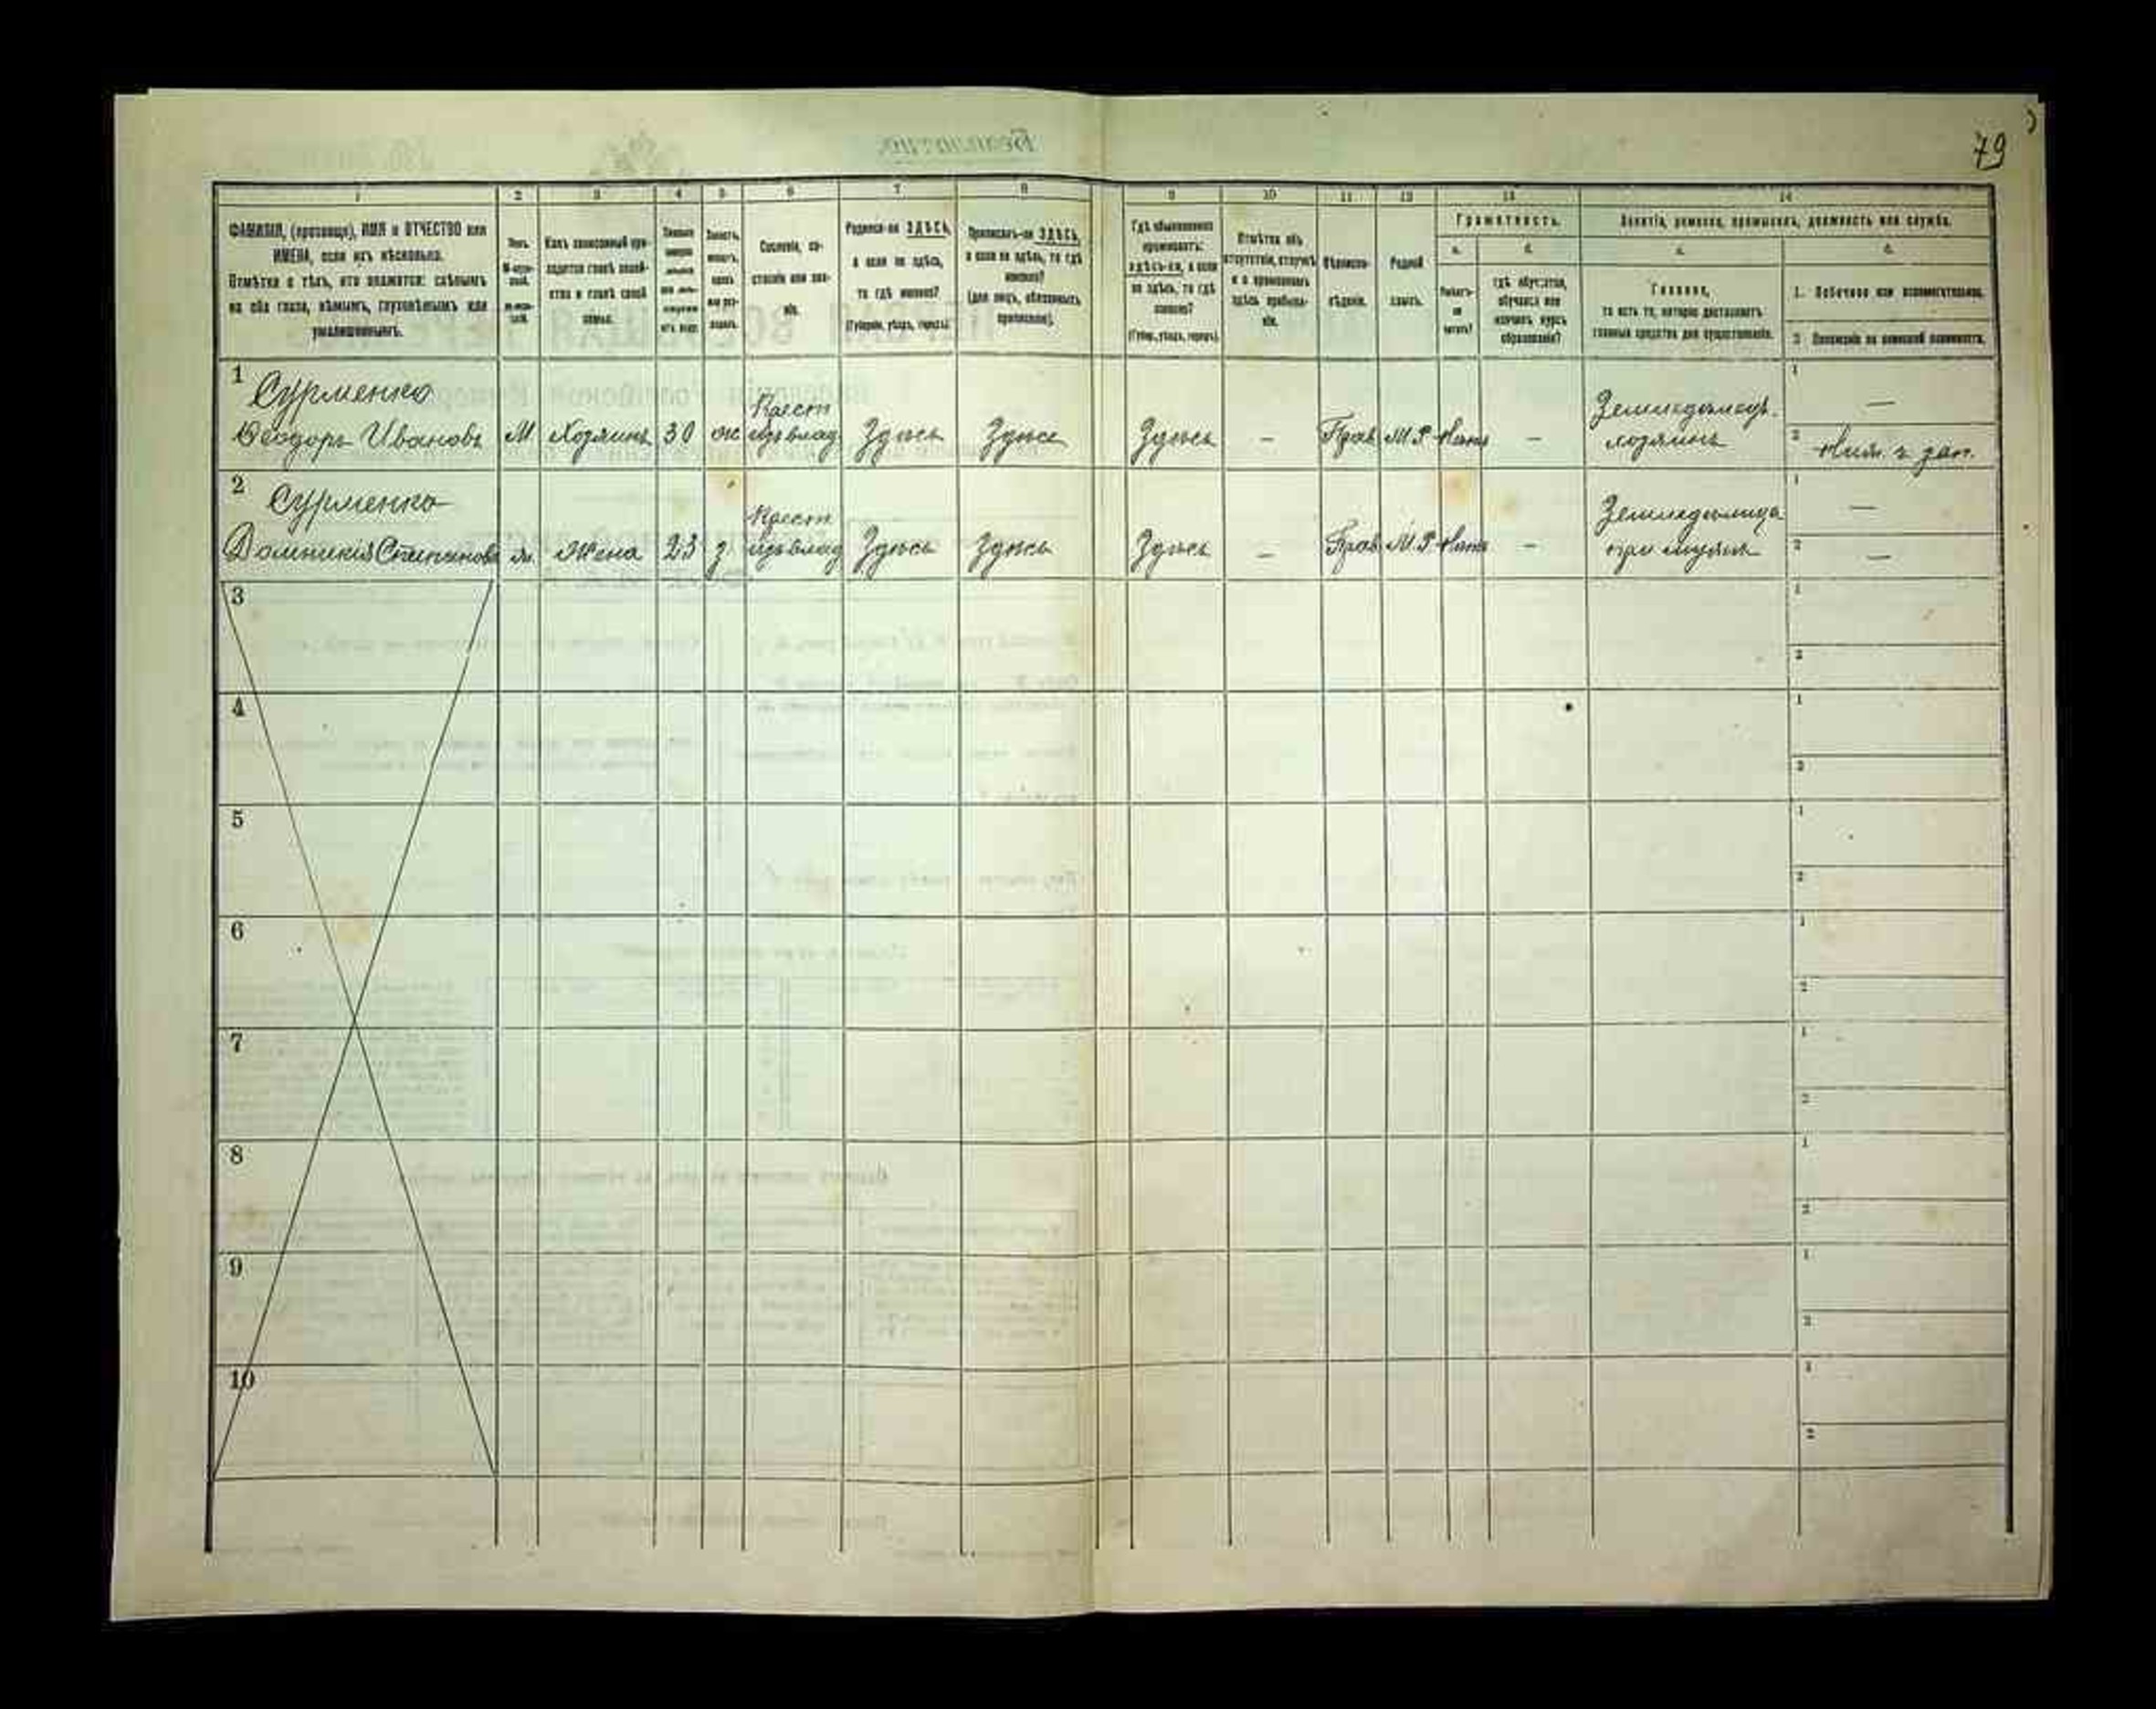 79
1 2 3 4 5 6 7 8 9 10 11 12 13 14
ФАМИЛІЯ, (прозвище), ИМЯ и ОТЧЕСТВО или
ИМЕНА, если ихъ нѣсколько.
Отмѣтка о тѣхъ, кто окажется: слѣпымъ
на оба глаза, нѣмымъ, глухонѣмымъ или
умалишеннымъ.
Полъ.
Какъ записанный при-
ходится главѣ хозяй-
ства и главѣ своей
семьи.
Сословіе, со-
стояніе или зва-
ніе.
Родился-ли ЗДѢСЬ,
а если не здѣсь,
то гдѣ именно?
(Губернія, уѣздъ, городъ)
Приписанъ-ли ЗДѢСЬ,
а если не здѣсь, то гдѣ
именно?
(для лицъ, обязанныхъ
припискою).
Гдѣ обыкновенно
проживаетъ:
здѣсь-ли, а если
не здѣсь, то гдѣ
именно?
(Губер., уѣздъ, городъ).
Отмѣтка объ
отсутствіи, отлучкѣ
и о временномъ
здѣсь пребыва-
ніи.
Вѣроиспо-
вѣданіе.
Родной
языкъ.
Грамотность.
а. б.
Умѣетъ-
ли
читать?
гдѣ обучается,
обучался или
кончилъ курсъ
образованія?
Занятіе, ремесло, промыселъ, должность или служба.
а. б.
Главное,
то есть то, которое доставляетъ
главныя средства для существованія.
1. Побочное или вспомогательное.
2. Положеніе по воинской повинности.
1 Сурменко
Ѳеодоръ Ивановъ М Хозяинъ 30 ж Крест. изъ влад. Здѣсь Здѣсь Здѣсь – Прав М.Р. Нѣтъ –
Земледѣлецъ.
хозяинъ
1 —
2
2 Сурменко
Домникія Степанова ж. Жена 23 з Крест. изъ влад. Здѣсь Здѣсь Здѣсь – Прав М.Р. Нѣтъ –
Земледѣлица
при мужѣ
1 —
2 —
3 1
2
4 1
2
5 1
2
6 1
2
7 1
2
8 1
2
9 1
2
10 1
2